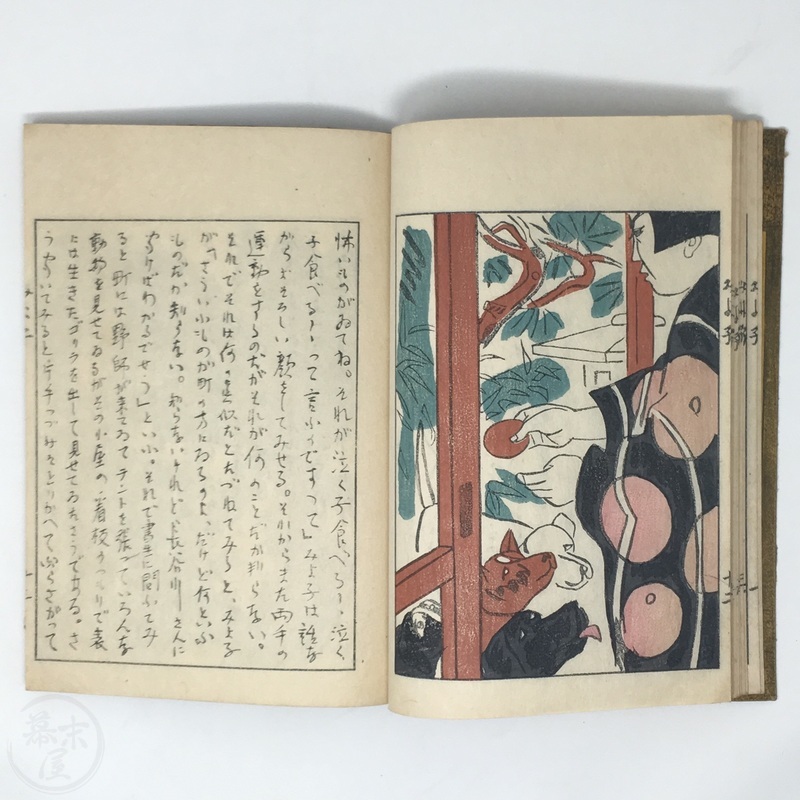 怖いものがゐてね。それが泣く子食べろ〱、泣く
子食べろ〱って言ふのですつて」みよ子は
がらおそろしい顔をしてみせる。それからまた両手の
運動をするのだがそれが何のことだか判らない。
それでそれは何の真似だとたづねてみると、みよ子
が「さういふものが町の方にゐるのよ、だけど何といふ
ものだか知らない。知らないけれど長谷川さんに
きけばわかるでせう」といふ。それで書生に問ふてみ
ると町には野師が来てゐてテントを張っていろんな
動物を見せてゐるがその小屋の看板の
には生きたゴリラを出して見せてゐたさうである。さ
うきいてみると とりかへてぶらさがって
みよ子
十二
幕末屋